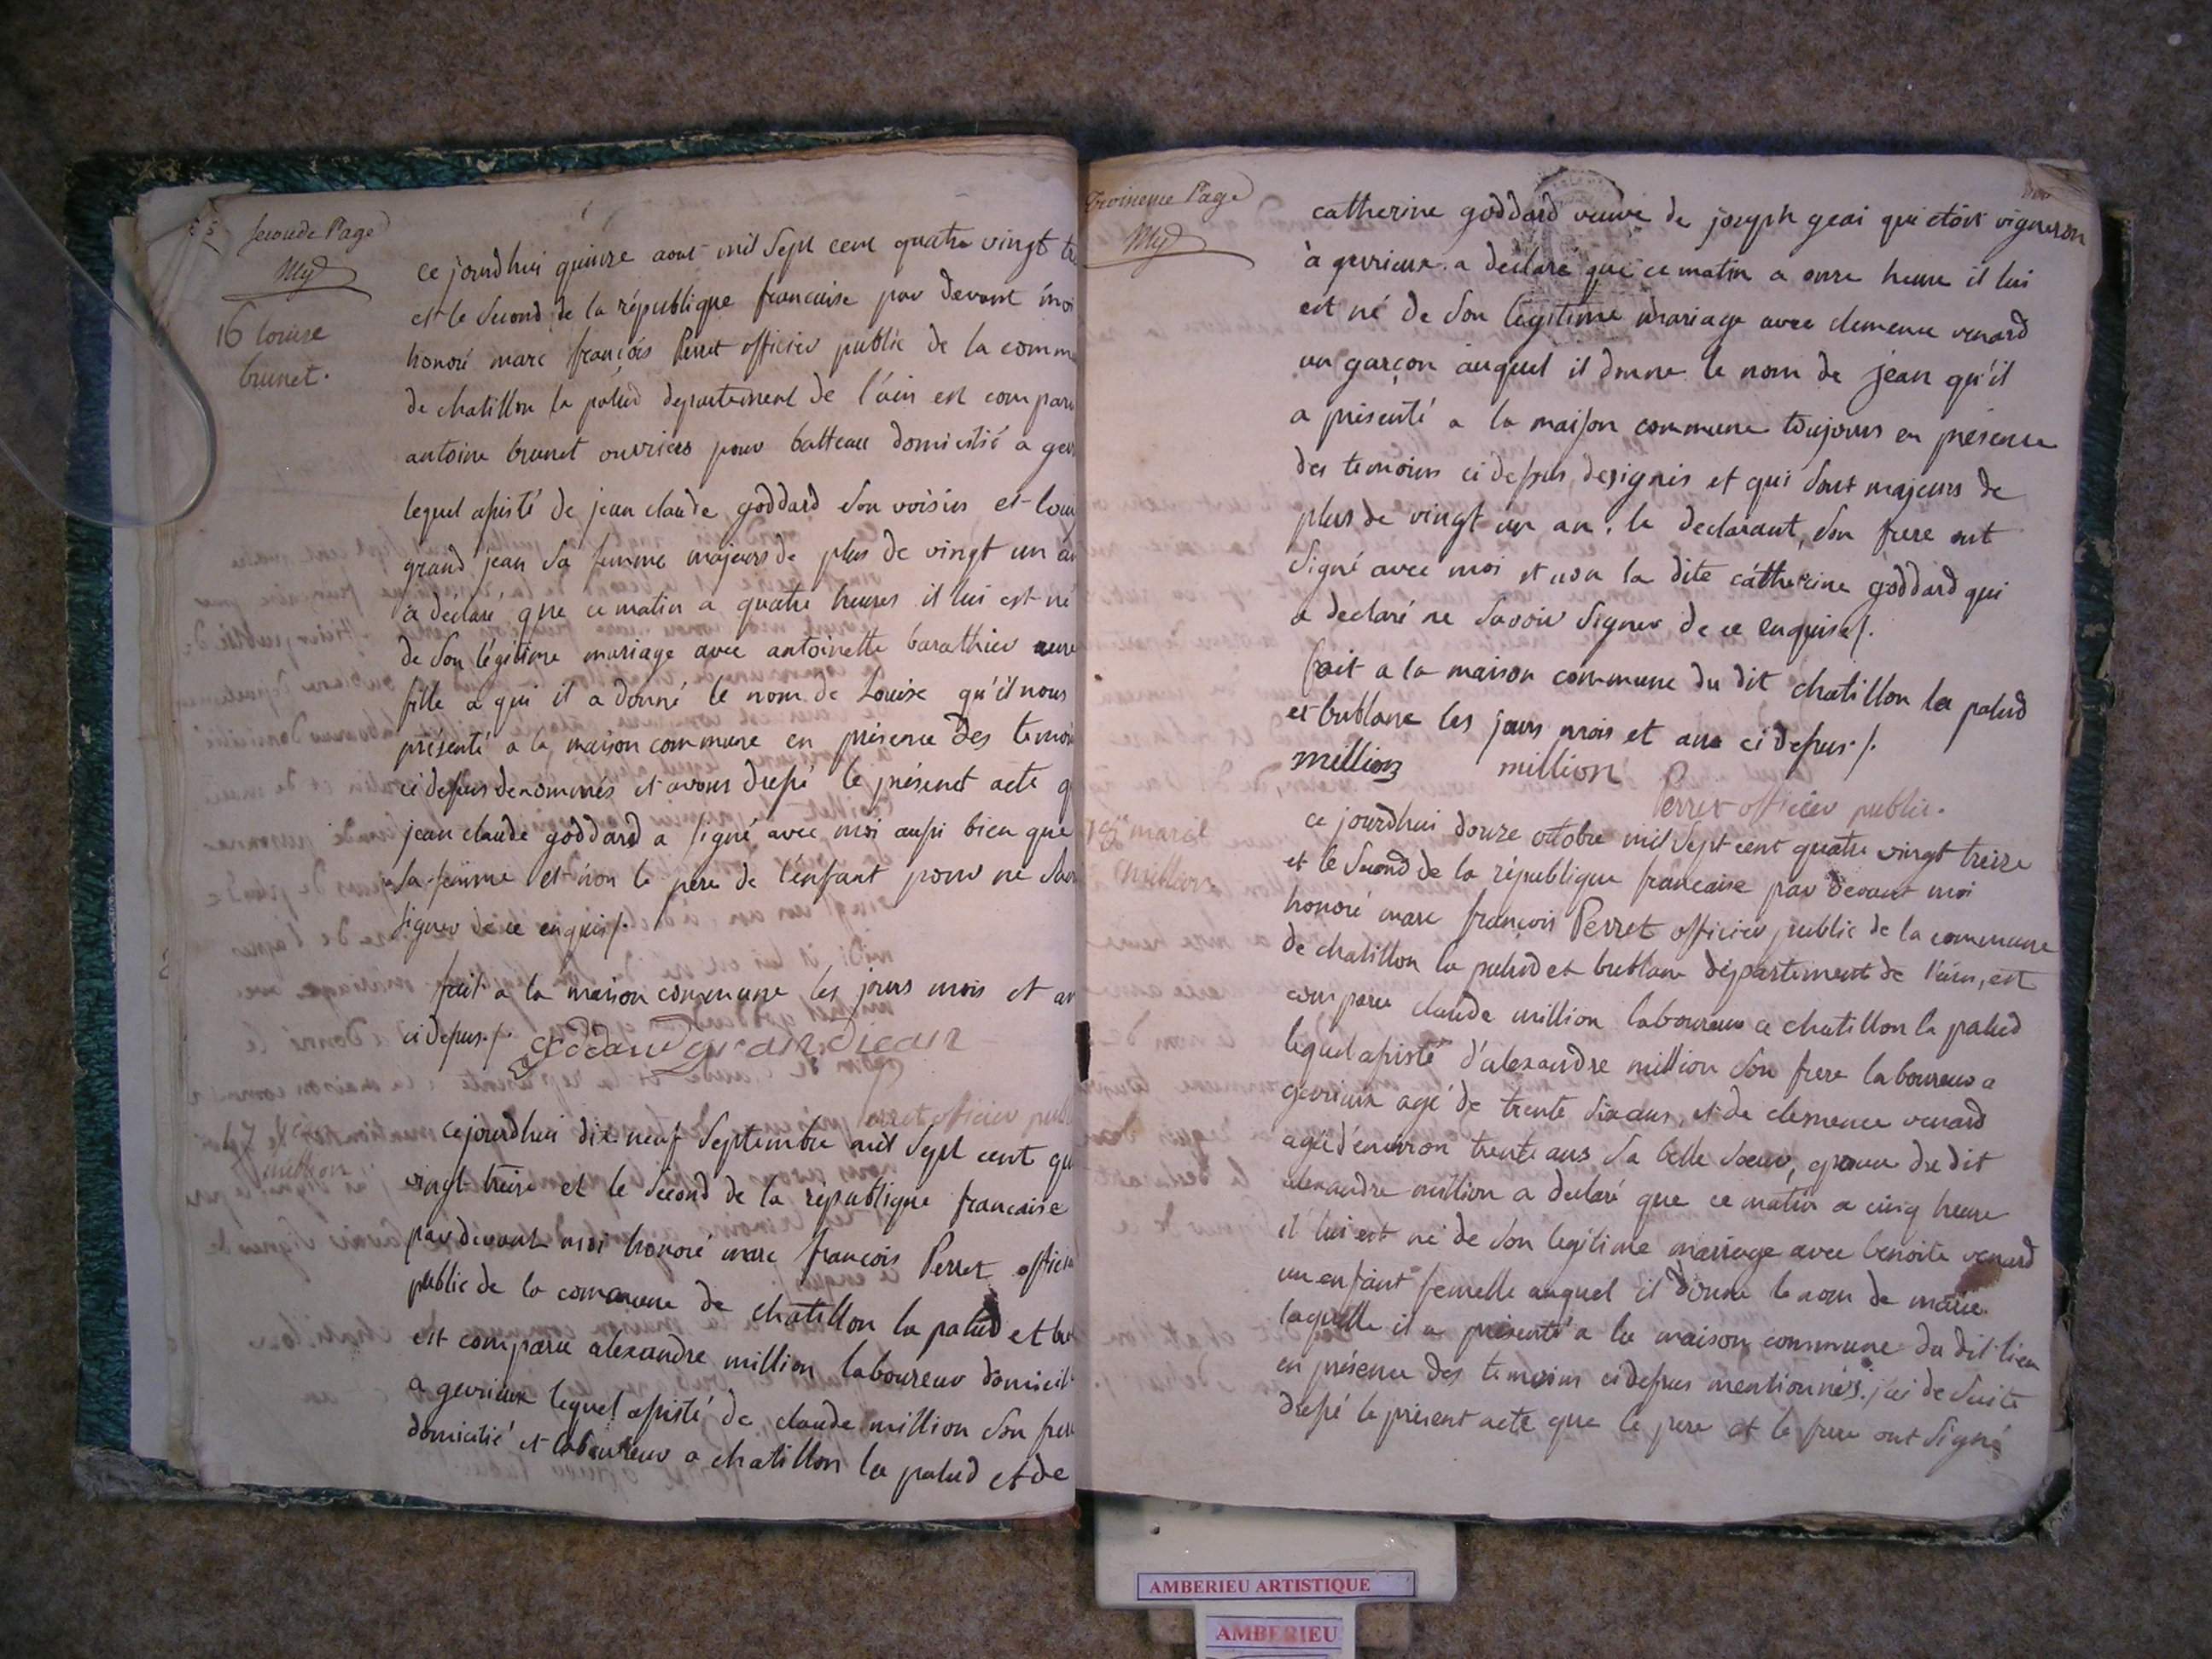 seconde Page
16 louise
brunet.
ce jourdhui quinze aout mil sept cent quatre vingt
et le second de la république francaise par devant moi
honoré marc françois Perret officier public de la comm
de chatillon la palud departement de l'ain est comparu
antoine brunet ouvriers pour batteau domicilié a gev
lequel assisté de jean claude goddard son voisin et loui
grand jean sa femme majeurs de plus de vingt un an
a déclaré que ce matin a quatre heures il lui est né
de son légitime mariage avec antoinette barathier une
fille a qui il a donné le nom de Louise qu'il nous
présenté a la maison commune en présence des temoin
ci dessus denommés et avons dressé le présent acte q
jean claude goddard a signé avec moi aussi bien que
sa femme et non le pere de l'enfant pour ne sav
signer de ce enquis /.
fait a la maison commune les jours mois et an
ci dessus./.
Perret officier publ
million
cejourdhui dix neuf septembre mil sept cent qu
vingt treize et le second de la république francaise
par devant moi honoré marc françois Perret offici
public de la commune de chatillon la palud et bu
est comparu alexandre million laboureur domicil
a gevrieux lequel assisté de claude million son frere
domicilié et laboureur a chatillon la palud et de
Troisieme Page
catherine goddard veuve de joseph geai qui étoit vigneron
à gevrieux a declaré que ce matin a onze heure il lui
est né de son legitime mariage avec clemence venard
un garçon auquel il donne le nom de jean qu'il
a présenté a la maison commune toujours en présence
des temoins ci dessus designés et qui sont majeurs de
plus de vingt un an. le declarant, son frere ont
signé avec moi et non la dite catherine goddard qui
a declaré ne savoir signer de ce enquise /.
fait a la maison commune du dit chatillon la palud
et bublane les jours mois et ans ci dessus ./.
million million
Perret officier public.
18 marie
million
ce jourdhui douze octobre mil sept cent quatre vingt treize
et le second de la république francaise par devant moi
honoré marc françois Perret officier public de la commune
de chatillon la palud et bublane département de l'ain, est
comparu claude million laboureur a chatillon la palud
lequel assisté d'alexandre million son frere laboureur a
gevrieux agé de trente six ans, et de clemence venard
agée d'environ trente ans sa belle soeur, epouse du dit
alexandre million a declaré que ce matin a cinq heure
il lui est né de son legitime mariage avec benoite venard
un enfant femelle auquel il donne le nom de marie
laquelle il a présenté a la maison commune du dit lieu
en présence des temoins ci dessus mentionnés. j'ai de suite
dressé le présent acte que le pere et le frere ont signé
AMBERIEU ARTISTIQUE
AMBERIEU